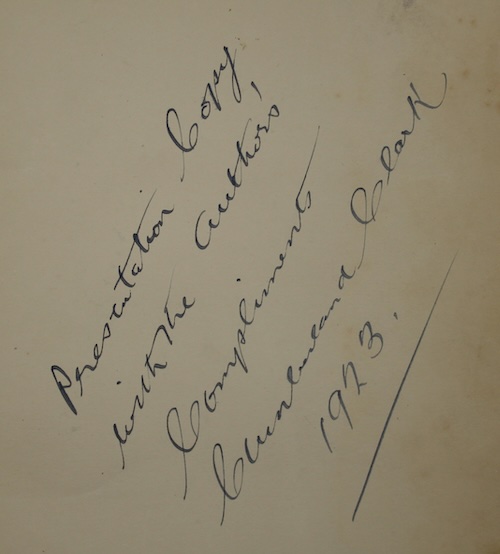 Presentation Copy
with the Author's
Compliments
Cumberland Clark
1923.